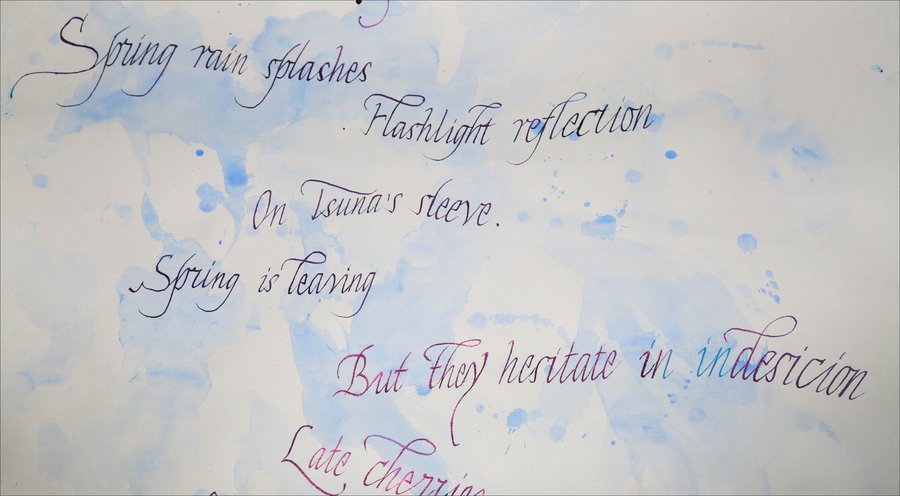 Spring rain splashes
Flashlight reflection
On Tsuna's sleeve.
Spring is leaving
But they hesitate in indesicion
Late cherries